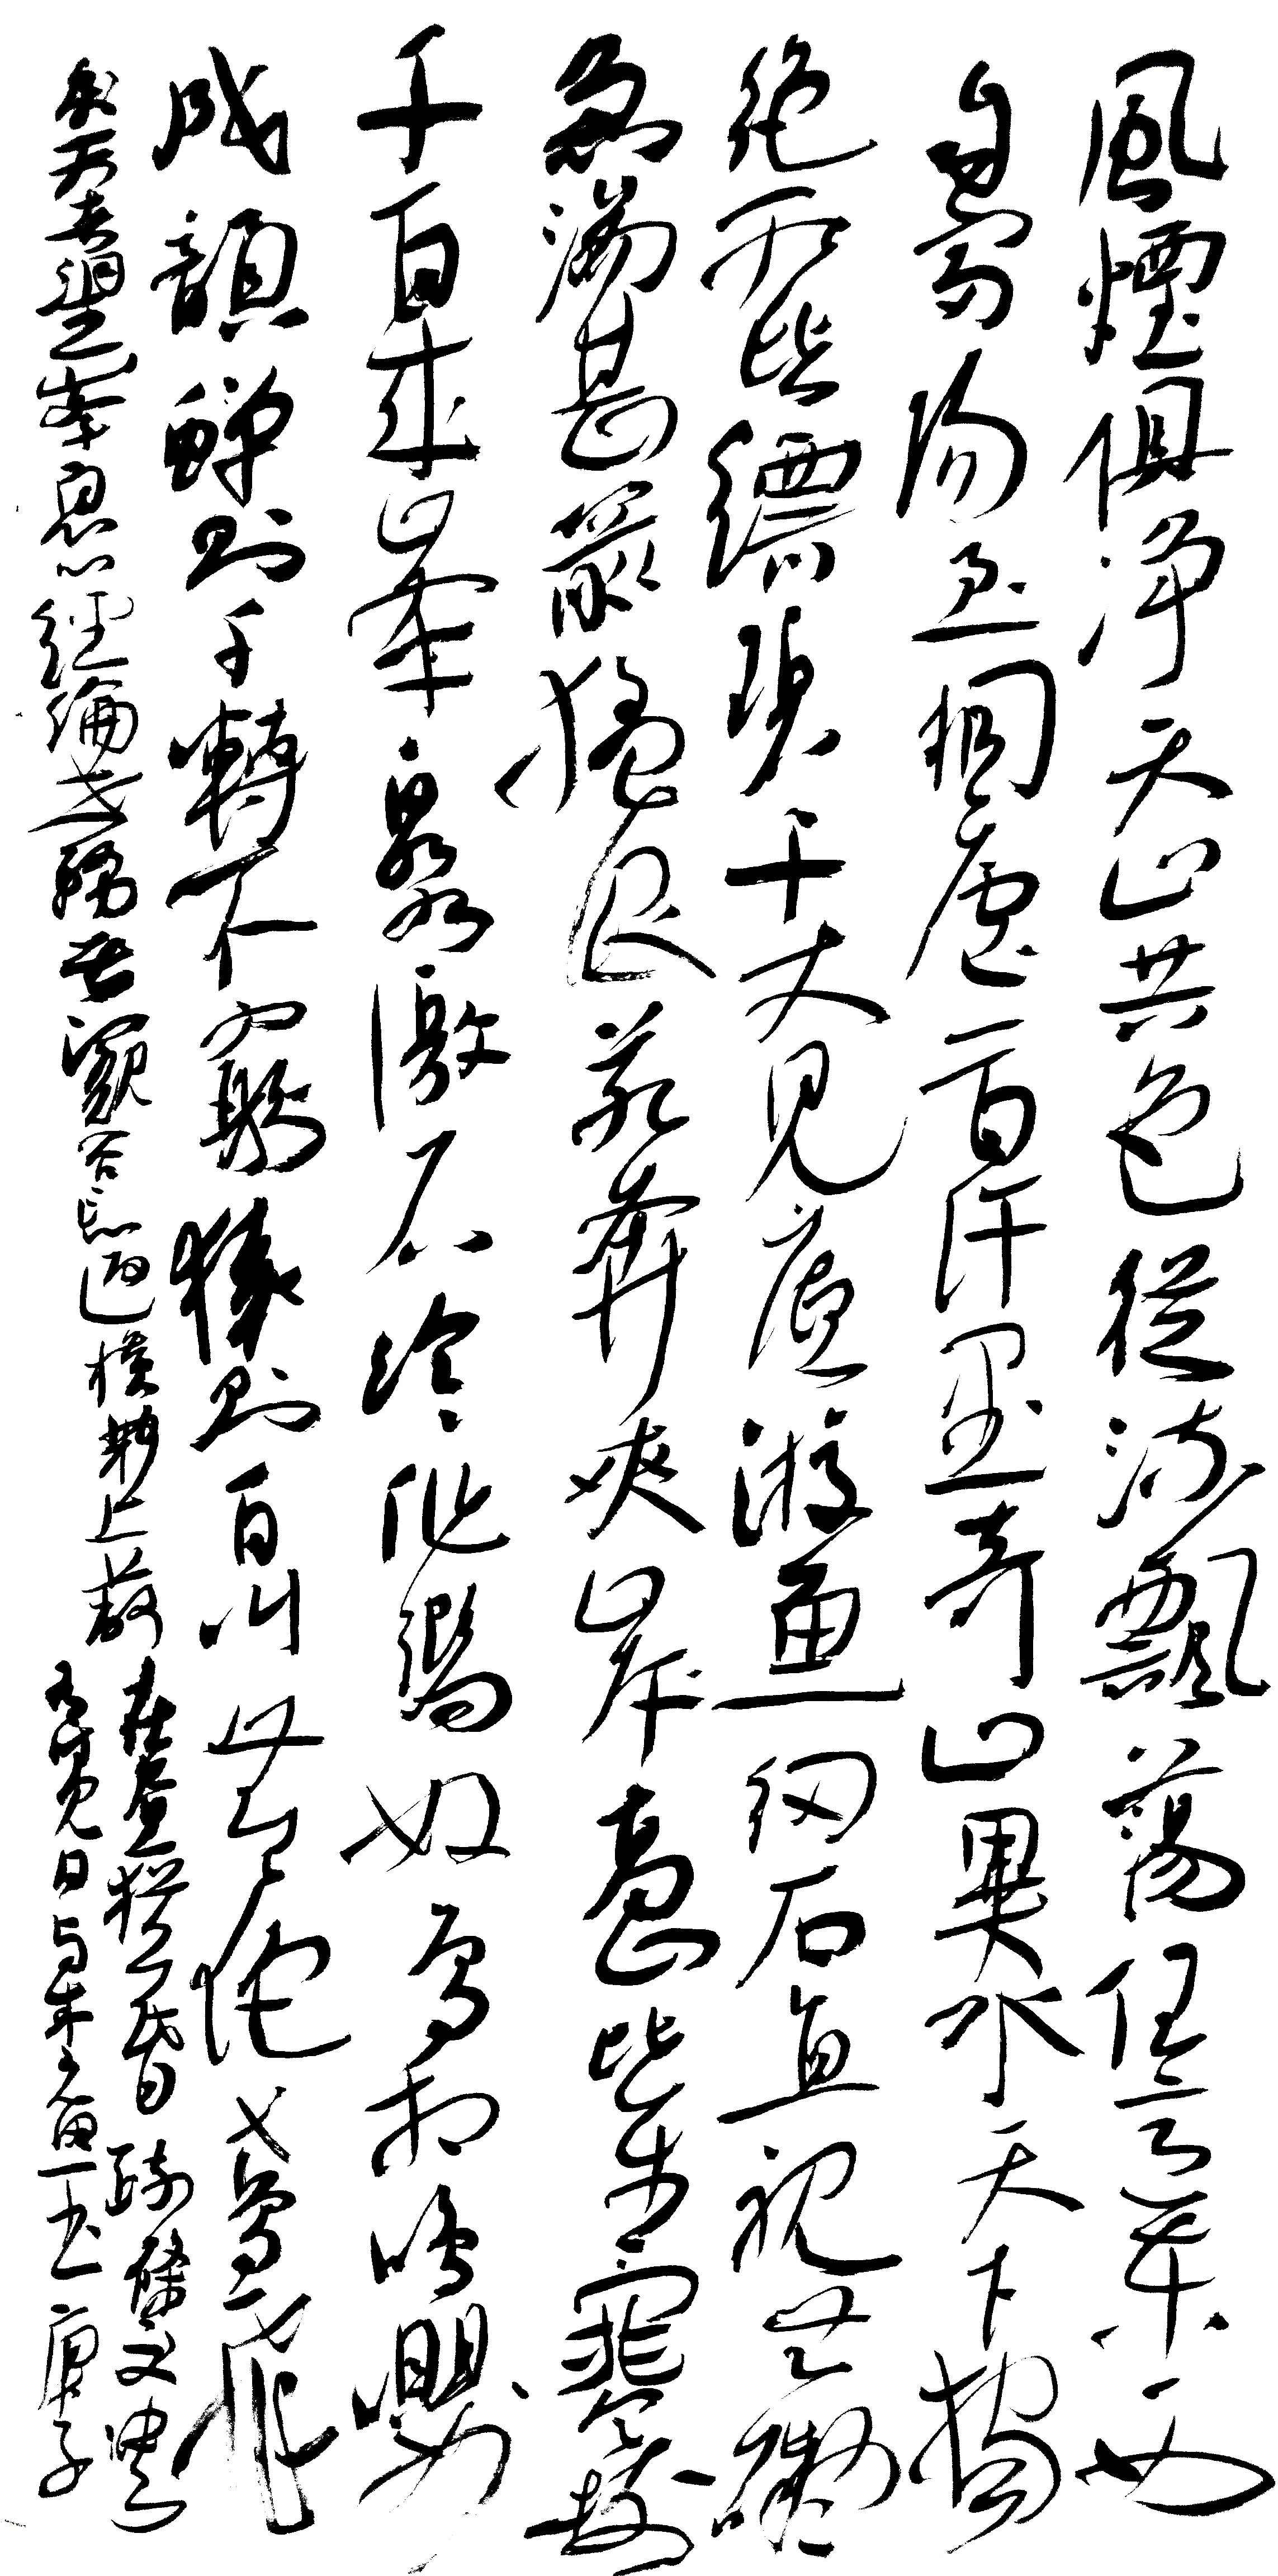 風煙俱净天山共色從流飄蕩任意東西
自富陽至桐廬一百許里奇山異水天下獨
絕水皆縹碧千丈見底游魚細石直視無礙
急湍甚箭猛浪若奔夾岸高山皆生寒樹
千百成峯泉水激石泠泠作響好鳥相鳴嚶嚶
成韻蟬則千轉不窮猿則百叫無絕鳶飛
戾天者望峯息心經綸世務者窺谷忘返橫柯上蔽
在晝猶昏疏條交映
有時見日与朱元思書庚子